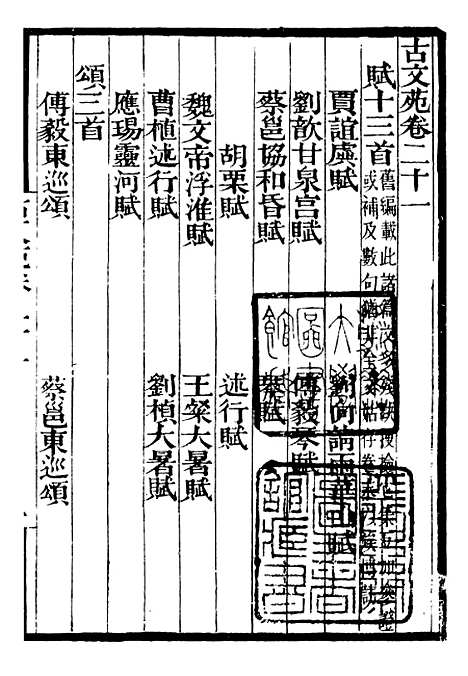 古文苑卷二十一
賦十三首 舊編載此諸篇文多殘缺搜檢 集並加參證
或補及數句猶非全 姑存卷末以 博識
賈誼虡賦 劉向請雨華山賦
劉歆甘泉宮賦 傅毅琴賦
蔡邕協和昏賦 琴賦
胡栗賦 述行賦
魏文帝浮淮賦 王粲大暑賦
曹植述行賦 劉楨大暑賦
應瑒靈河賦
頌三首
傅毅東巡頌 蔡邕東巡頌